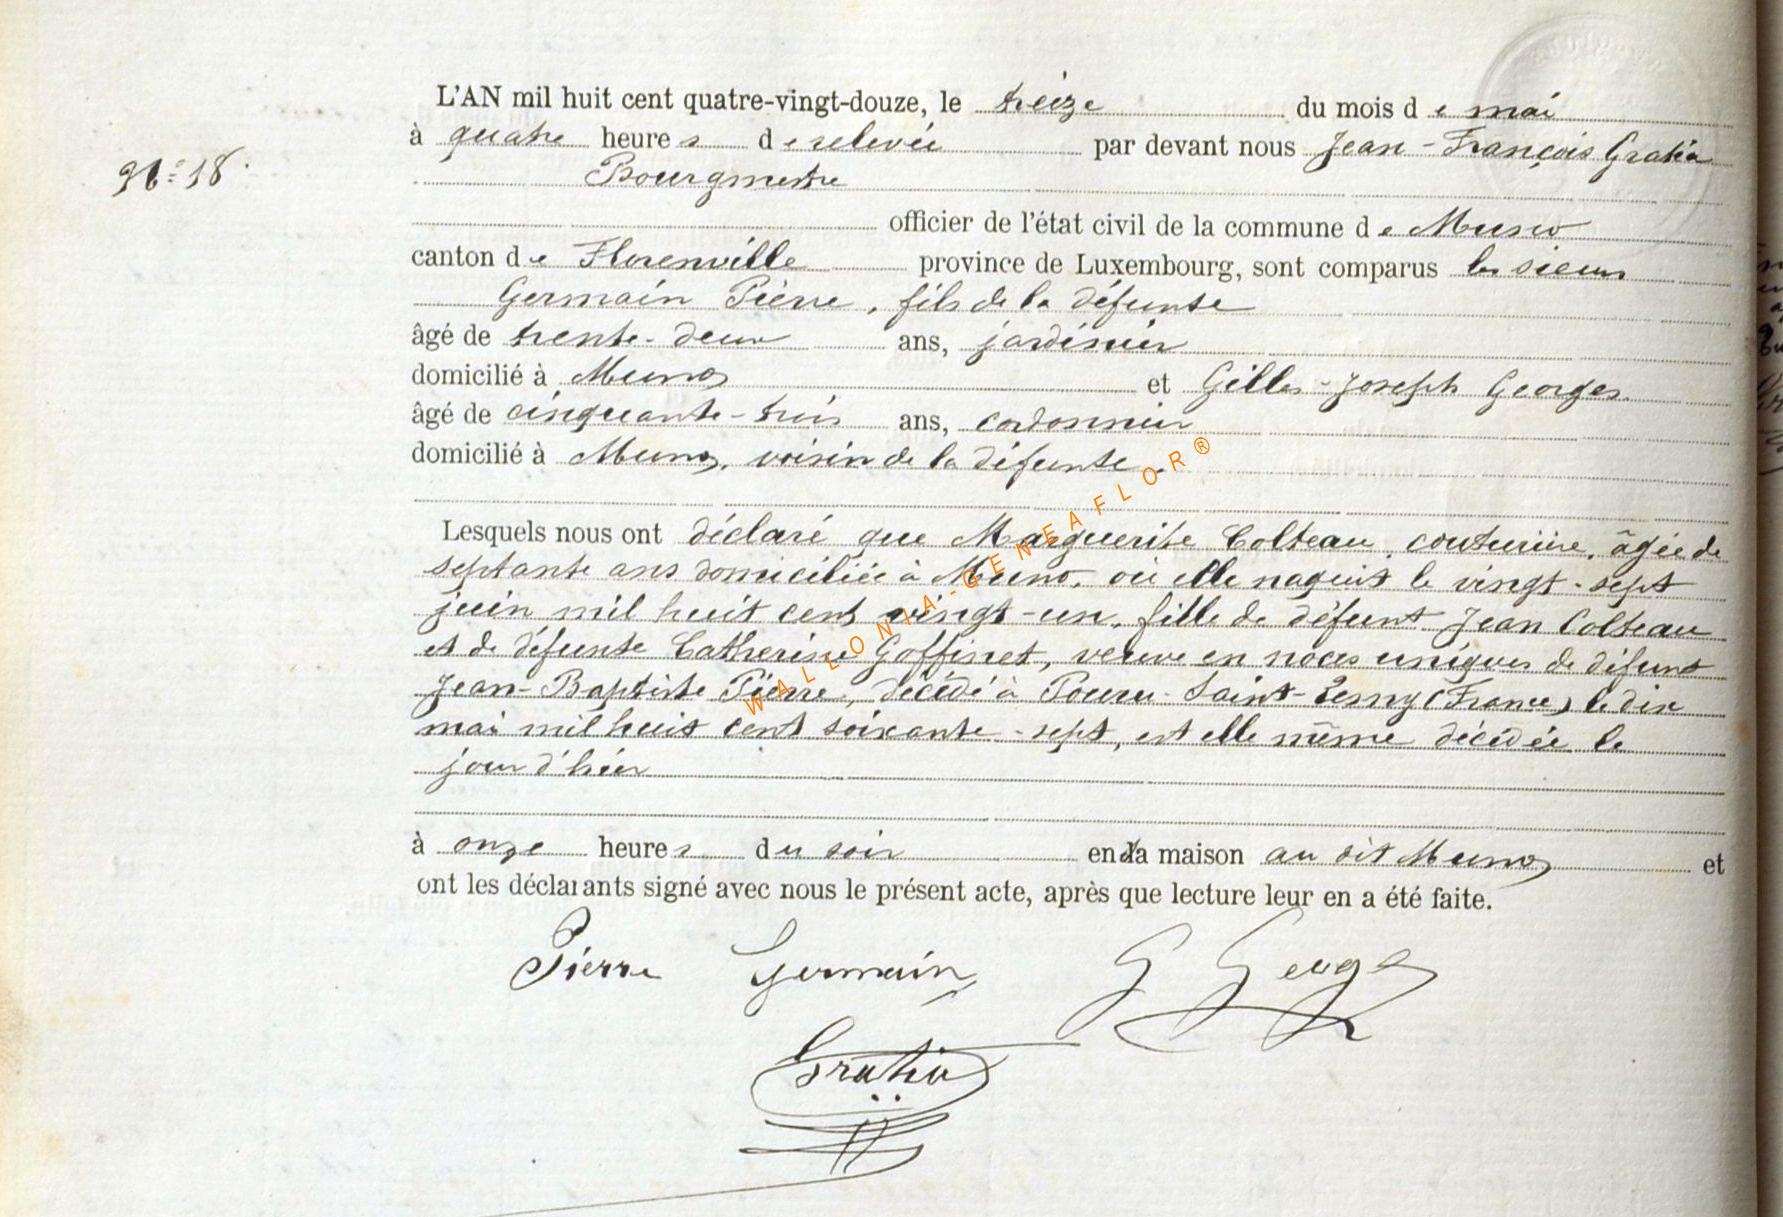 L'AN mil huit cent quatre-vingt-douze, le treize du mois de mai
à quatre heures de relevée par devant nous Jean-François Gratia
N°: 18.
Bourgmestre
officier de l'état civil de la commune de Muno
canton de Florenville province de Luxembourg, sont comparus les sieurs
Germain Pierre, fils de la défunte
âgé de trente-deux ans, jardinier
domicilié à Muno et Gilles-Joseph Georges
âgé de cinquante-trois ans, cordonnier
domicilié à Muno, voisin de la défunte.
Lesquels nous ont déclaré que Marguerite Colteau, couturière, âgée de
septante ans domiciliée à Muno, où elle naquit le vingt-sept
juin mil huit cent vingt-un, fille de défunt Jean Colteau
et de défunte Catherine Goffinet, veuve en noces uniques de défunt
Jean-Baptiste Pierre, décédé à Pouru-Saint-Remy (France) le dix
mai mil huit cent soixante-sept, est elle même décédée le
jour d'hier
à onze heures du soir en la maison au dit Muno et
ont les déclarants signé avec nous le présent acte, après que lecture leur en a été faite.
Pierre Germain G Georges
Gratia
WALLONIA-GENEAFLOR®